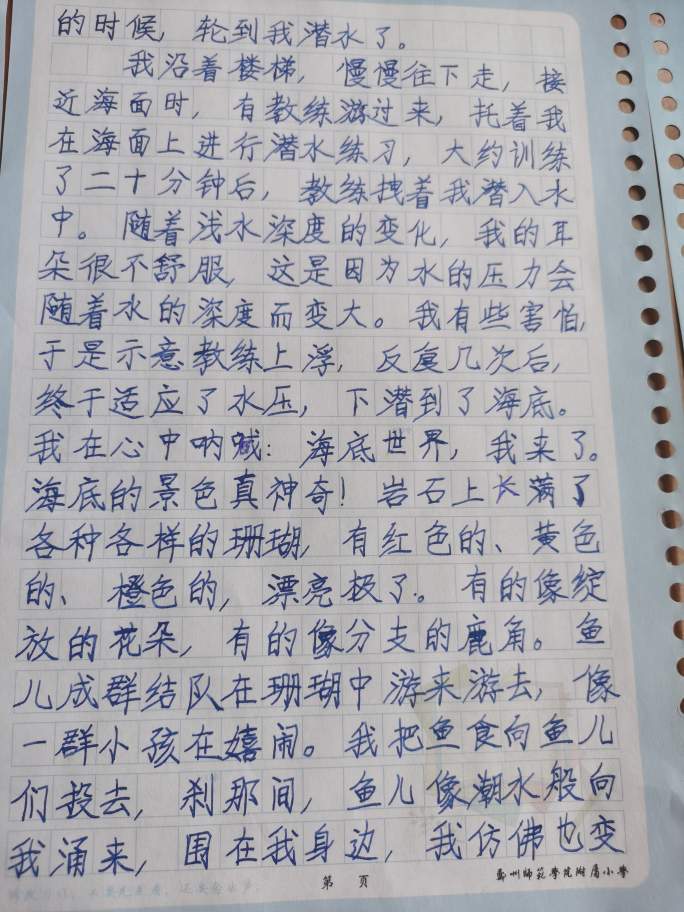 的时候，轮到我潜水了。
我沿着楼梯，慢慢往下走，接
近海面时，有教练游过来，托着我
在海面上进行潜水练习，大约训练
了二十分钟后，教练拽着我潜入水
中。随着浅水深度的变化，我的耳
朵很不舒服，这是因为水的压力会
随着水的深度而变大。我有些害怕，
于是示意教练上浮，反复几次后，
终于适应了水压，下潜到了海底。
我在心中呐喊：海底世界，我来了。
海底的景色真神奇！岩石上长满了
各种各样的珊瑚，有红色的、黄色
的、橙色的，漂亮极了。有的像绽
放的花朵，有的像分支的鹿角。鱼
儿成群结队在珊瑚中游来游去，像
一群小孩在嬉闹。我把鱼食向鱼儿
们投去，刹那间，鱼儿像潮水般向
我涌来，围在我身边，我仿佛也变
第 页 郑州师范学院附属小学